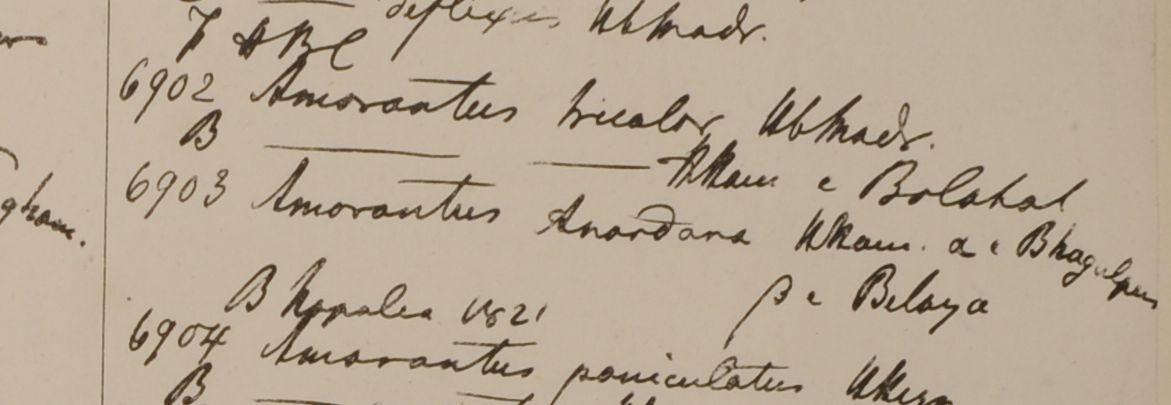 deflexus Hb Madr.
7 ABC
6902 Amarantus tricolor Hb Madr.
B HHam e Bolahat
6903 Amarantus Anardana HHam. α e Bhagulpur
β e Belaya
B Napalia 1821
6904 Amarantus paniculatus
B
gham.